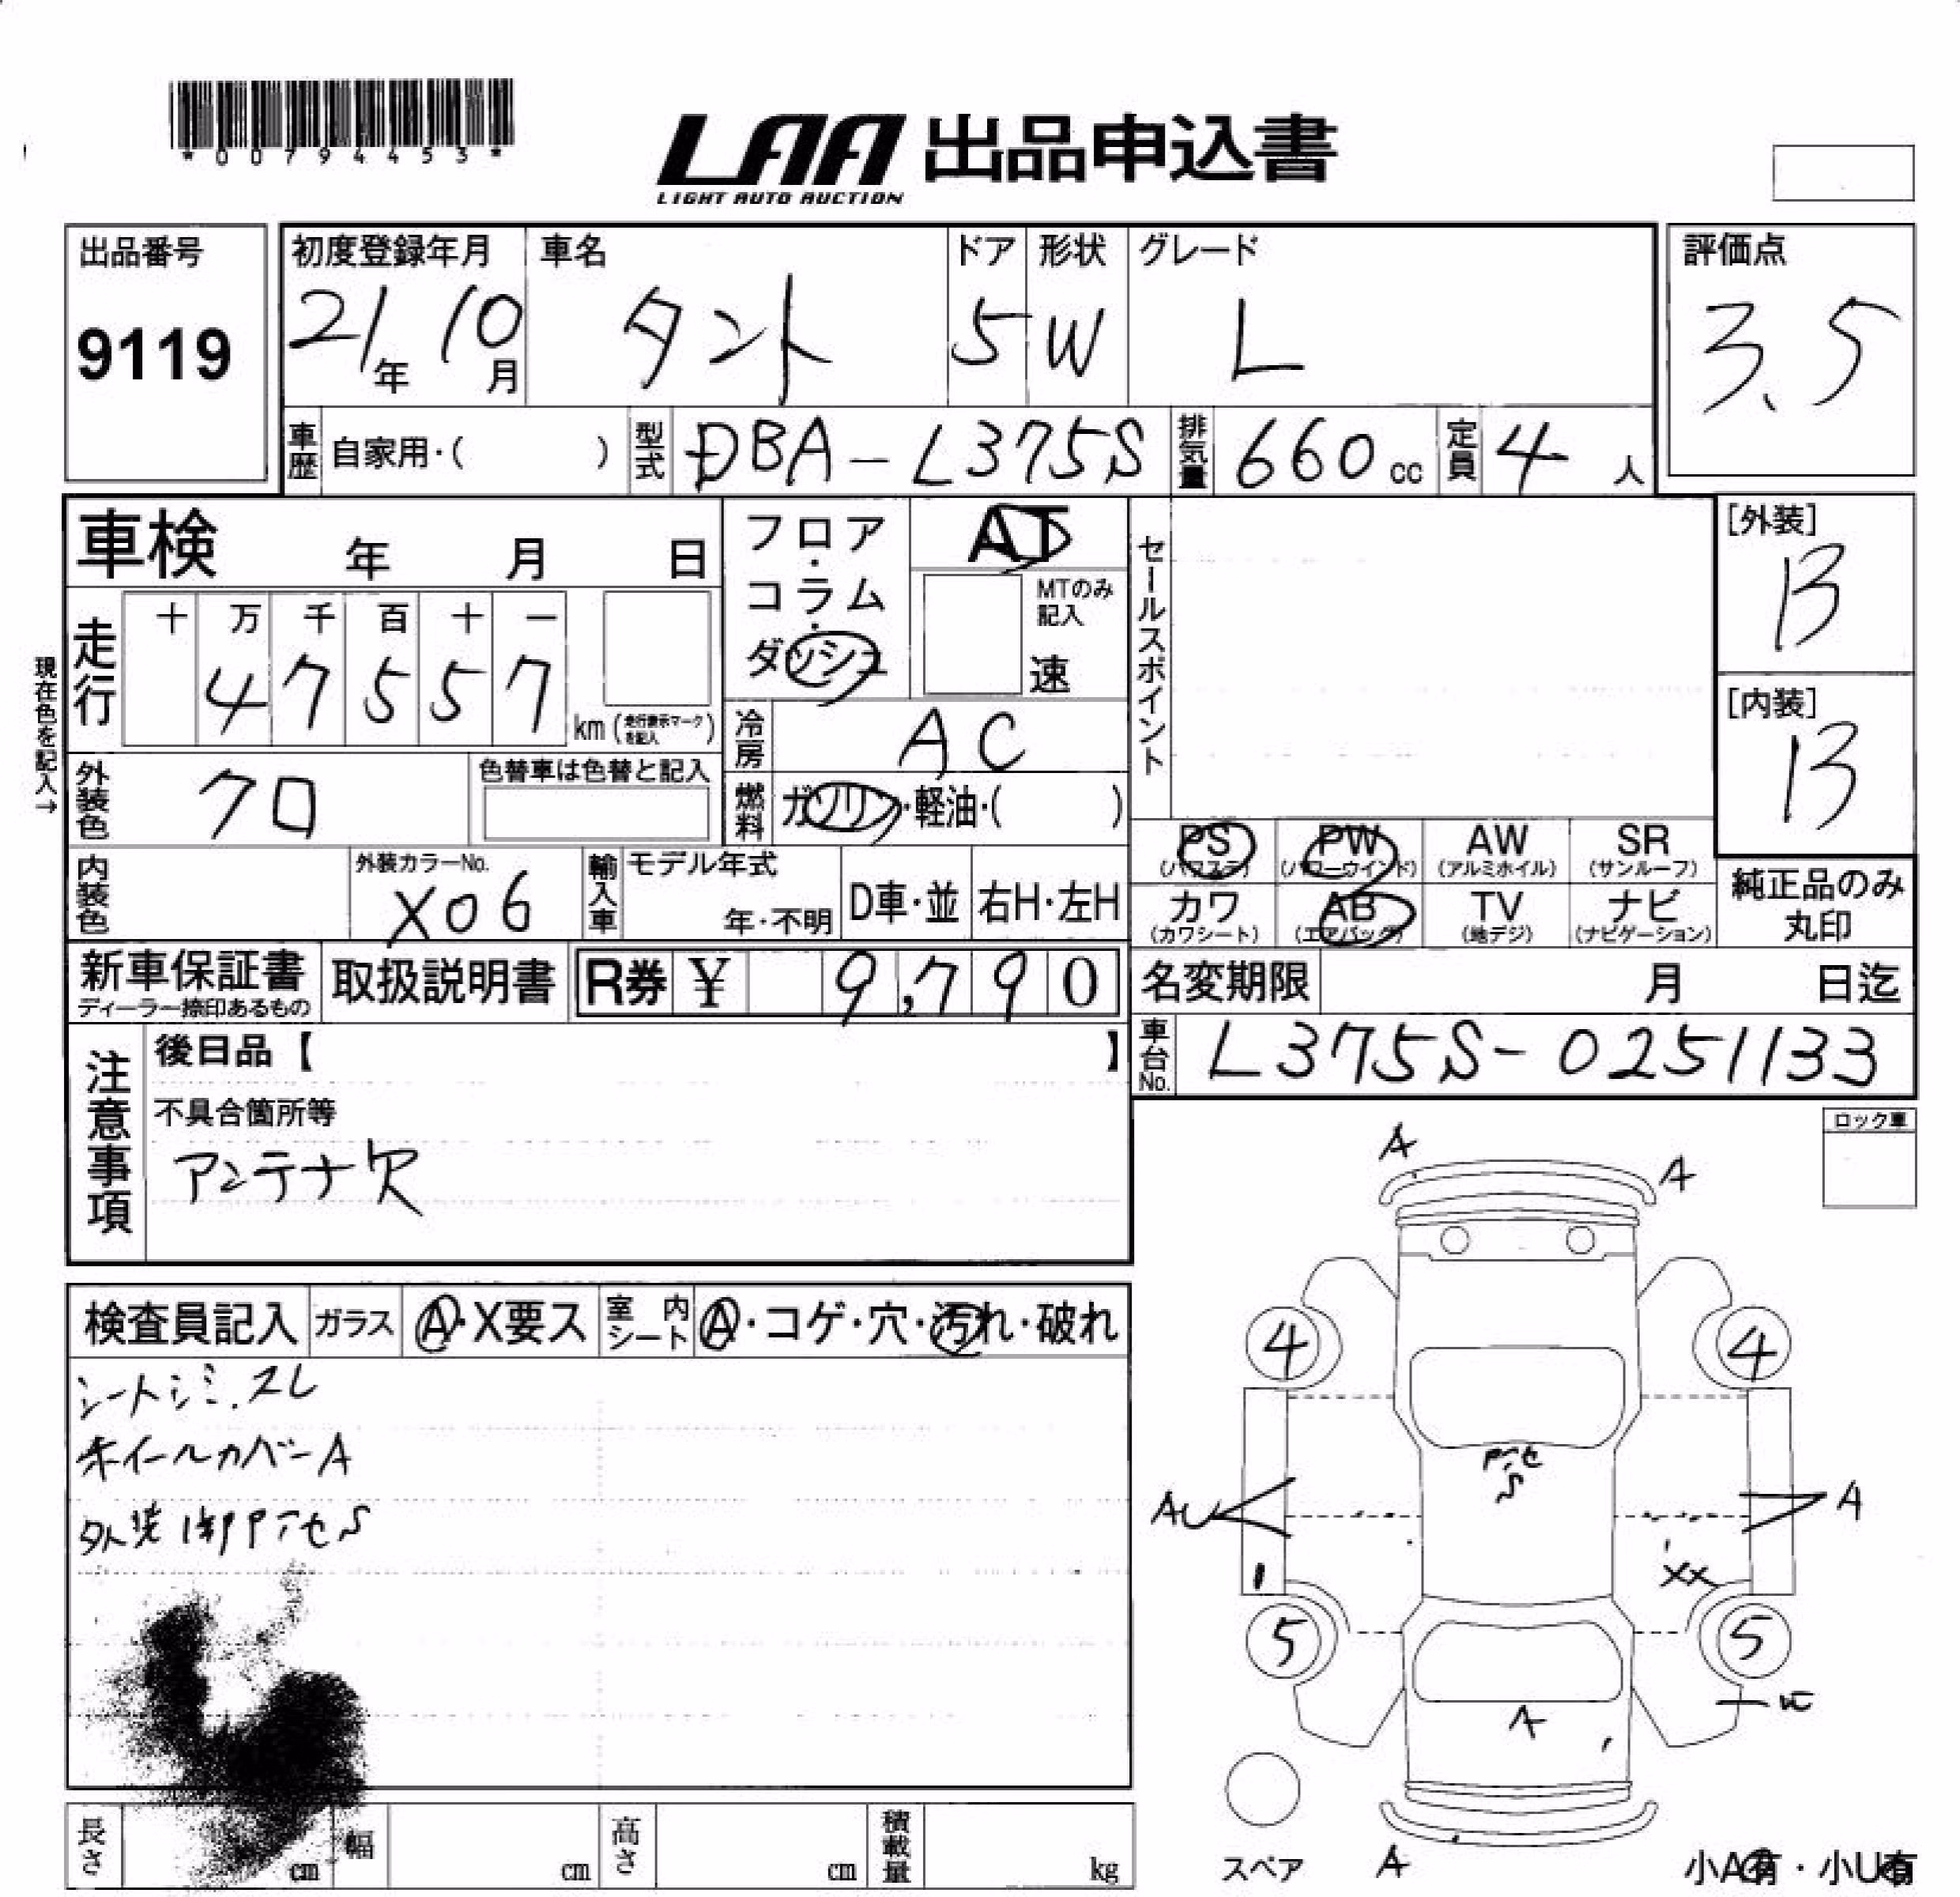 *00794453*
LAA 出品申込書
LIGHT AUTO AUCTION
出品番号
9119
初度登録年月
21年 10月
車名
タント
ドア
5
形状
W
グレード
L
評価点
3.5
車歴 自家用・( )
型式 DBA-L375S
排気量 660cc
定員 4人
車検 年 月 日
フロア・コラム・ダッシュ
AT
MTのみ記入
速
セールスポイント
[外装]
B
[内装]
B
現在色を記入→
走行
十 万 千 百 十 一
4 7 5 5 7
km (走行表示マークを記入)
冷房 AC
外装色 クロ
色替車は色替と記入
燃料 ガソリン・軽油・( )
内装色
外装カラーNo.
X06
輸入車
モデル年式
年・不明
D車・並
右H・左H
PS (パワステ)
PW (パワーウインド)
AW (アルミホイル)
SR (サンルーフ)
カワ (カワシート)
AB (エアバッグ)
TV (地デジ)
ナビ (ナビゲーション)
純正品のみ丸印
新車保証書
ディーラー捺印あるもの
取扱説明書
R券 ¥ 9,790
名変期限 月 日迄
車台No. L375S-0251133
注意事項
後日品【 】
不具合箇所等
アンテナ欠
ロック車
検査員記入
ガラス A・X要ス
室内シート A・コゲ・穴・汚れ・破れ
シートシミ.スレ
ホイールカバーA
外装
A
A
4
4
AU
A
XX
5
5
A
A
スペア
小A有・小U有
長さ cm
幅 cm
高さ cm
積載量 kg